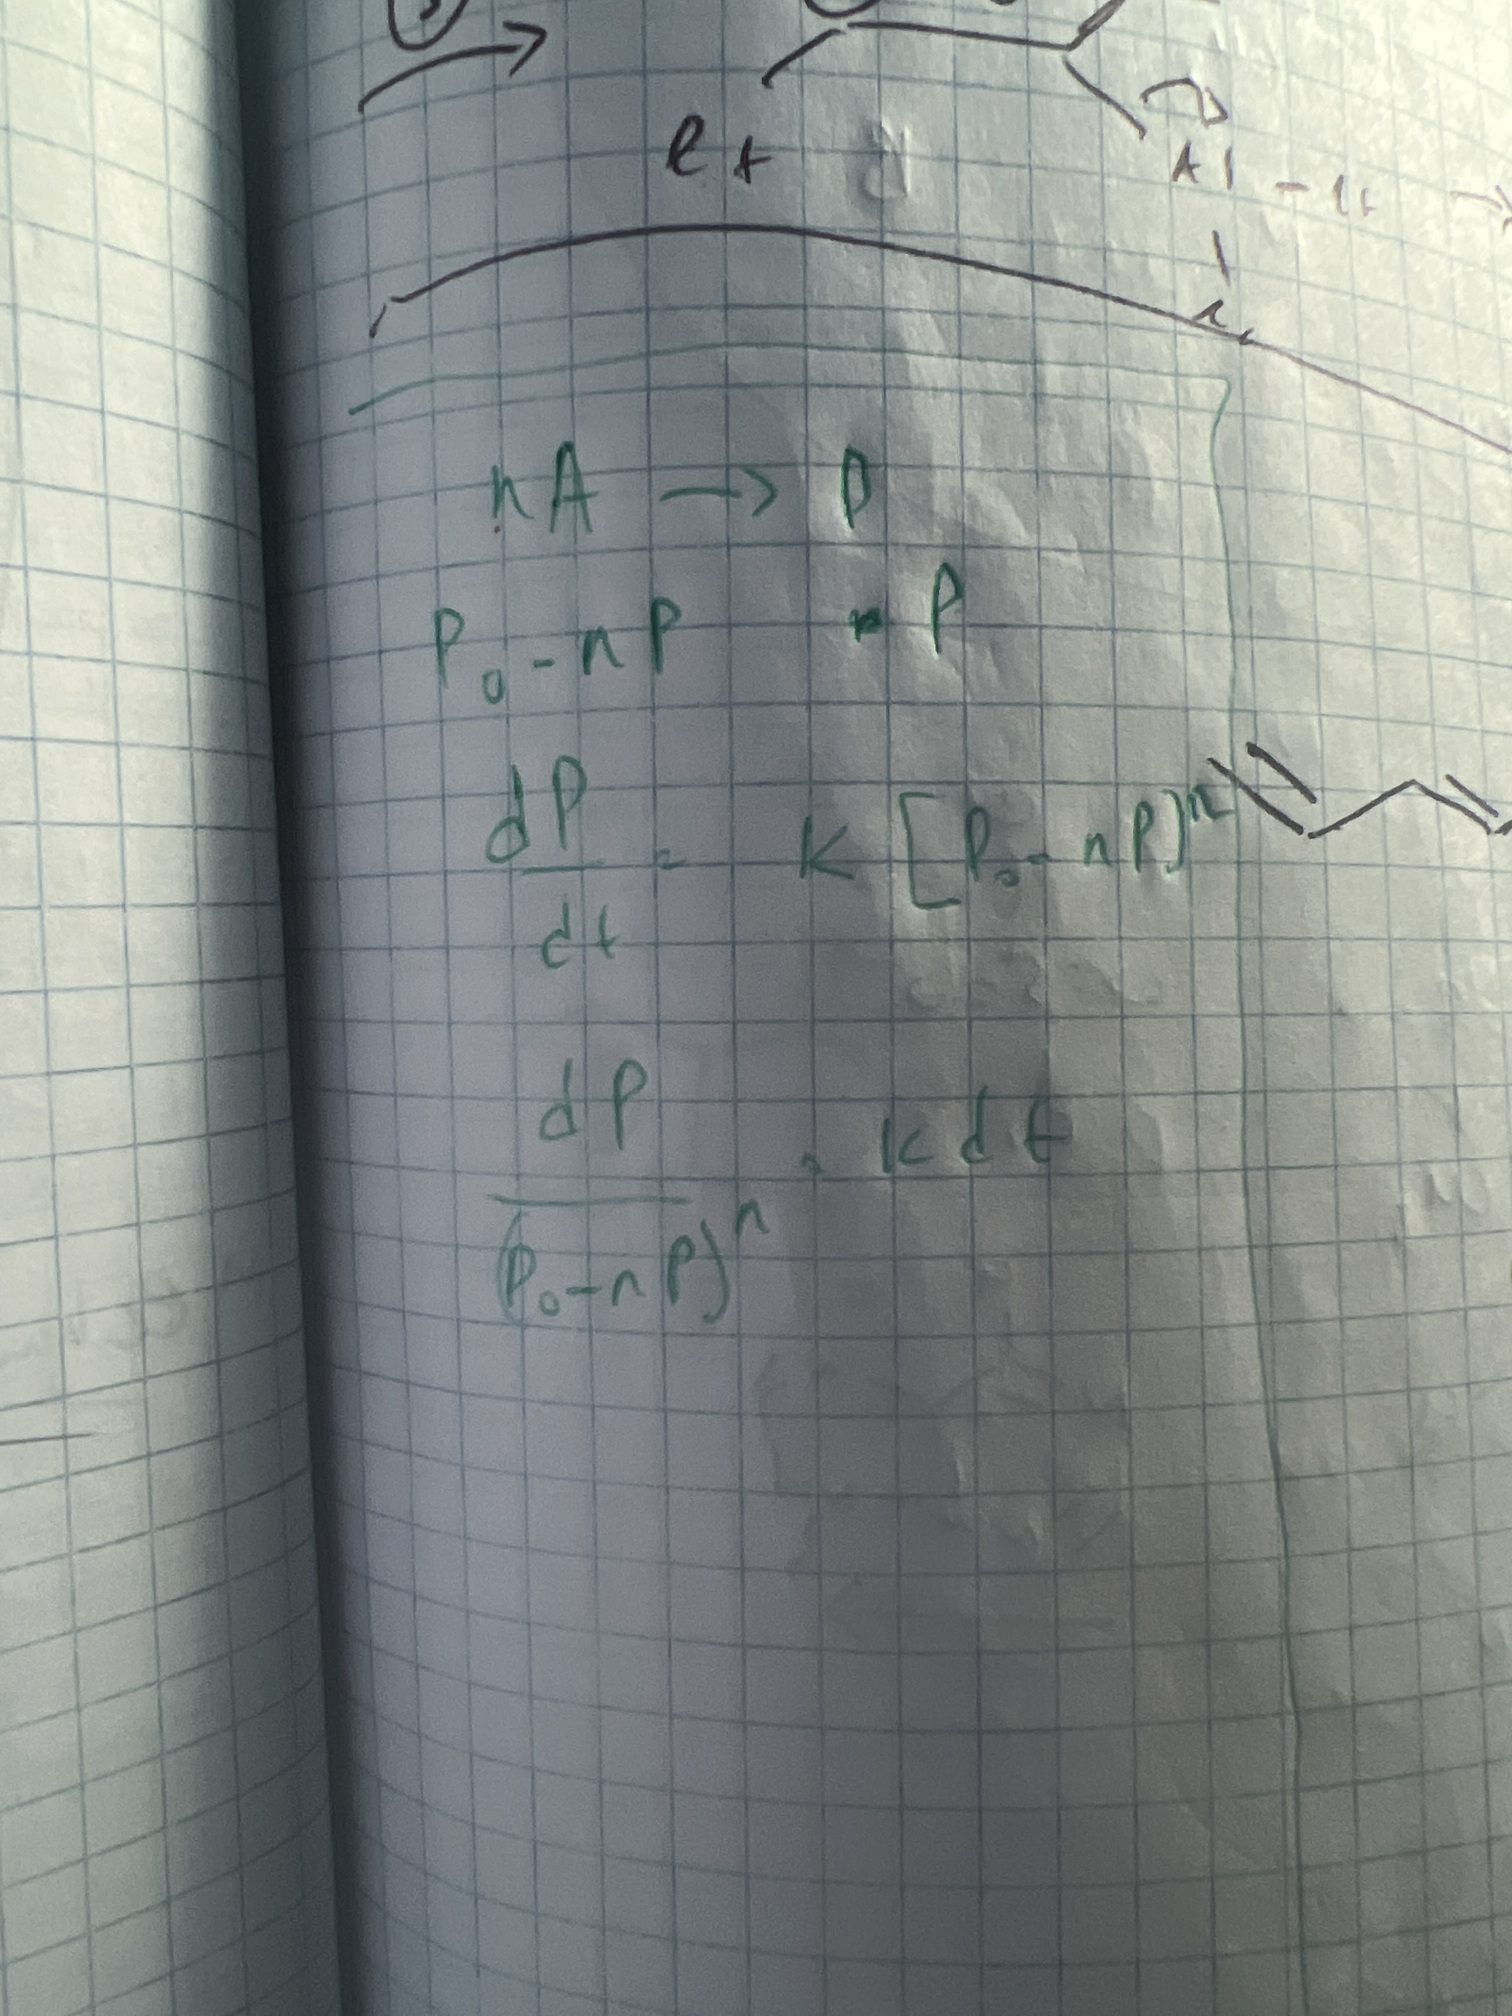 et
Al
nA → P
P₀ - nP P
dP/dt = k [P₀ - nP]ⁿ
dP/(P₀ - nP)ⁿ = k dt